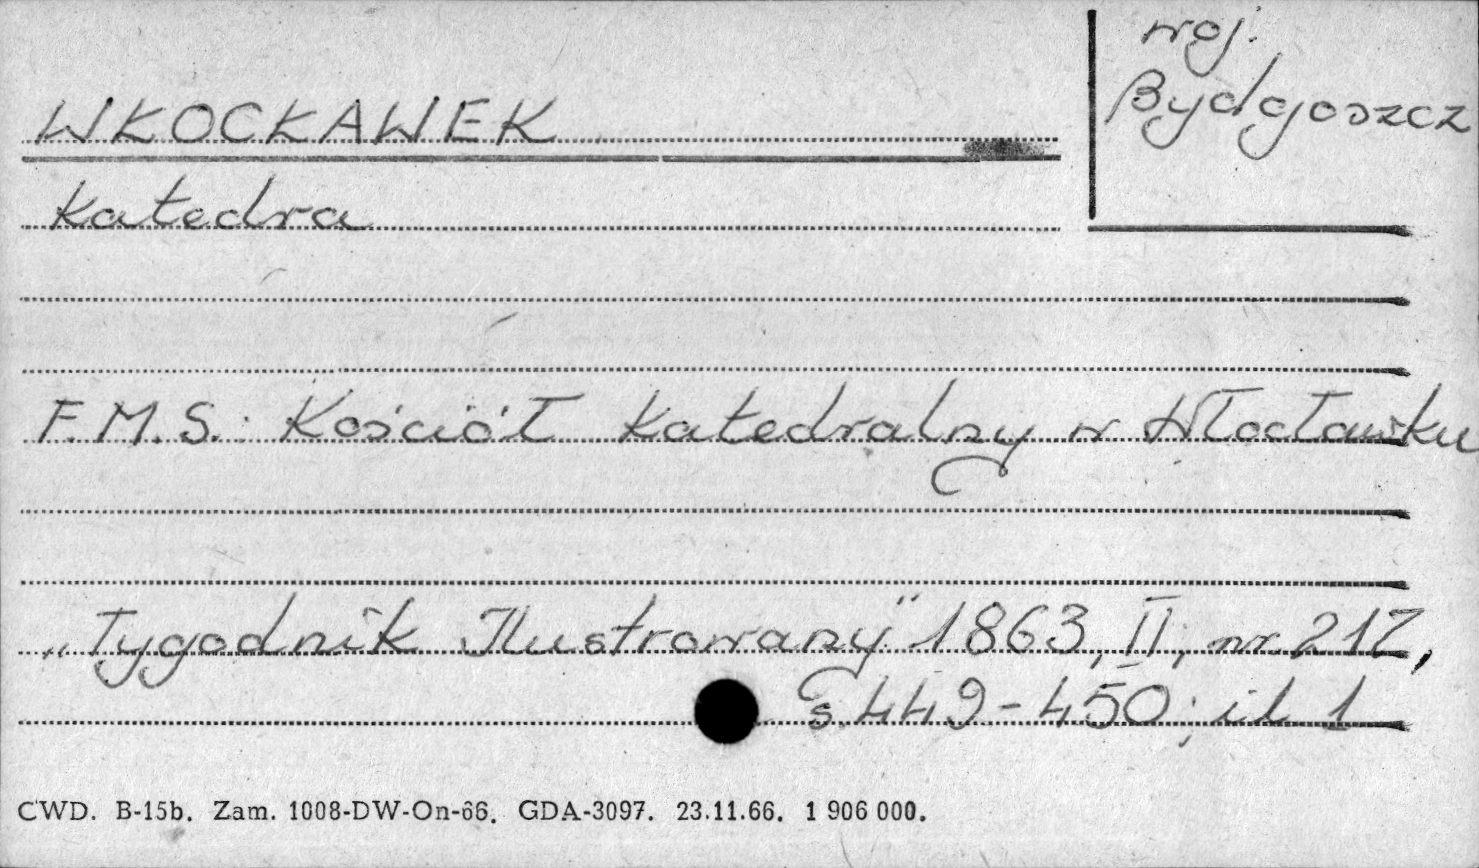 woj.
Bydgoszcz
WŁOCŁAWEK
Katedra
F.M.S.: Kościół katedralny w Włocławku
„Tygodnik Ilustrowany" 1863, II, nr. 217,
s. 449-450; il. 1
CWD. B-15b. Zam. 1008-DW-On-66. GDA-3097. 23.11.66. 1 906 000.